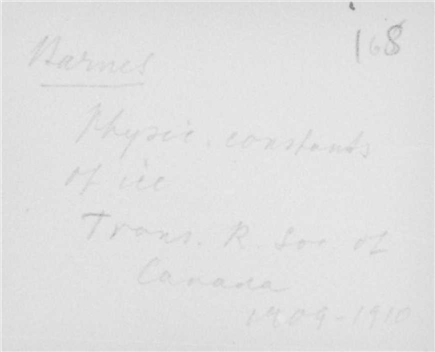 168
Barnes
Physic. constants
of ice
Trans. R. Soc of
Canada
1909-1910